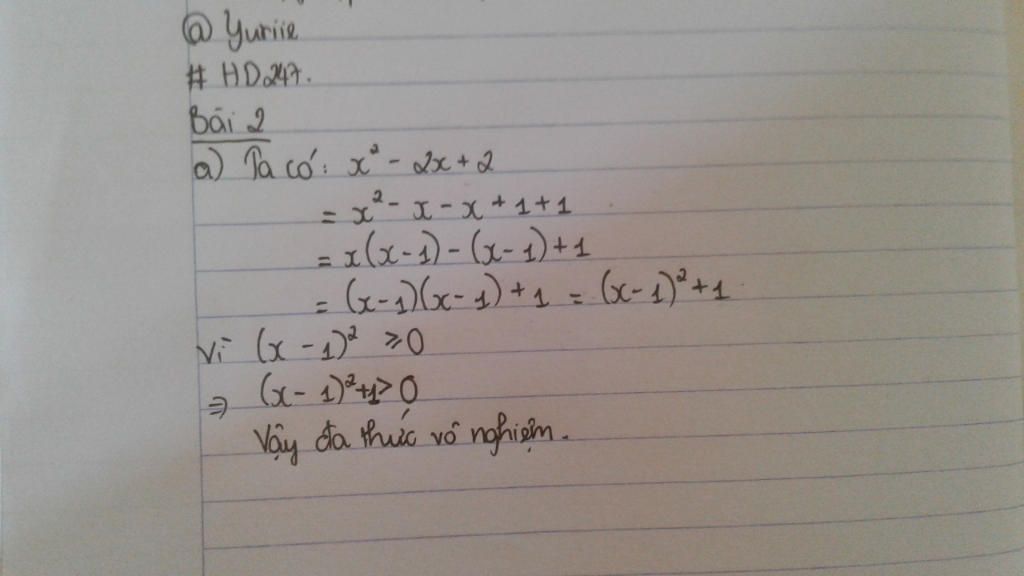 @ Yuriie
# HD247.
Bài 2
a) Ta có: x² - 2x + 2
= x² - x - x + 1 + 1
= x(x - 1) - (x - 1) + 1
= (x - 1)(x - 1) + 1 = (x - 1)² + 1
Vì (x - 1)² ≥ 0
⇒ (x - 1)² + 1 > 0
Vậy đa thức vô nghiệm.